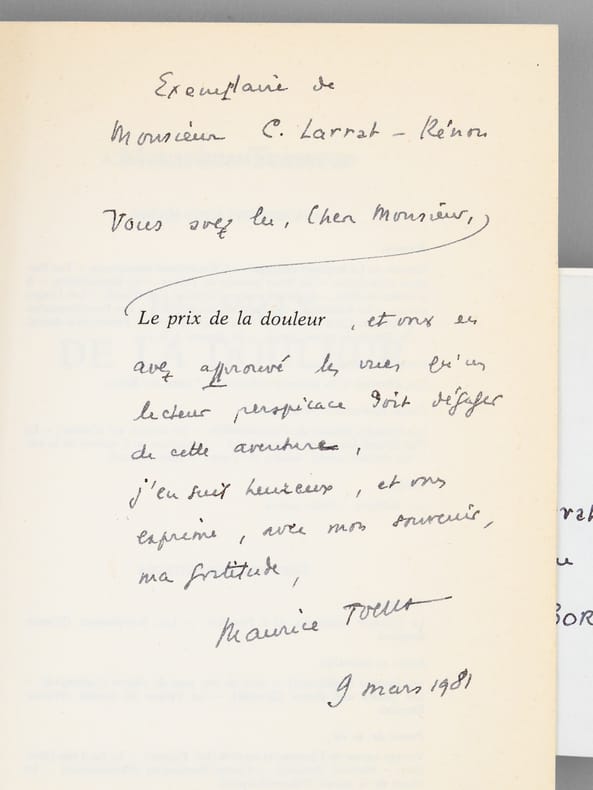 Exemplaire de
Monsieur C. Larrat - Rénon
Vous avez lu, Cher Monsieur,
Le prix de la douleur, et vous en
avez approuvé les vues qu'un
lecteur perspicace doit dégager
de cette aventure,
j'en suis heureux, et vous
exprime, avec mon souvenir,
ma gratitude,
Maurice Toesca
9 mars 1981
rrat
BOR